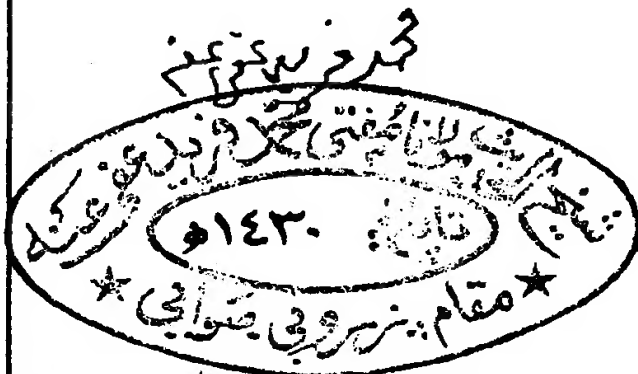 محمد فرید عفی عنہ
شیخ الحدیث مولانا مفتی محمد فرید عفی عنہ
١٤٣٠ھ
★ مقام زروبی صوابی ★